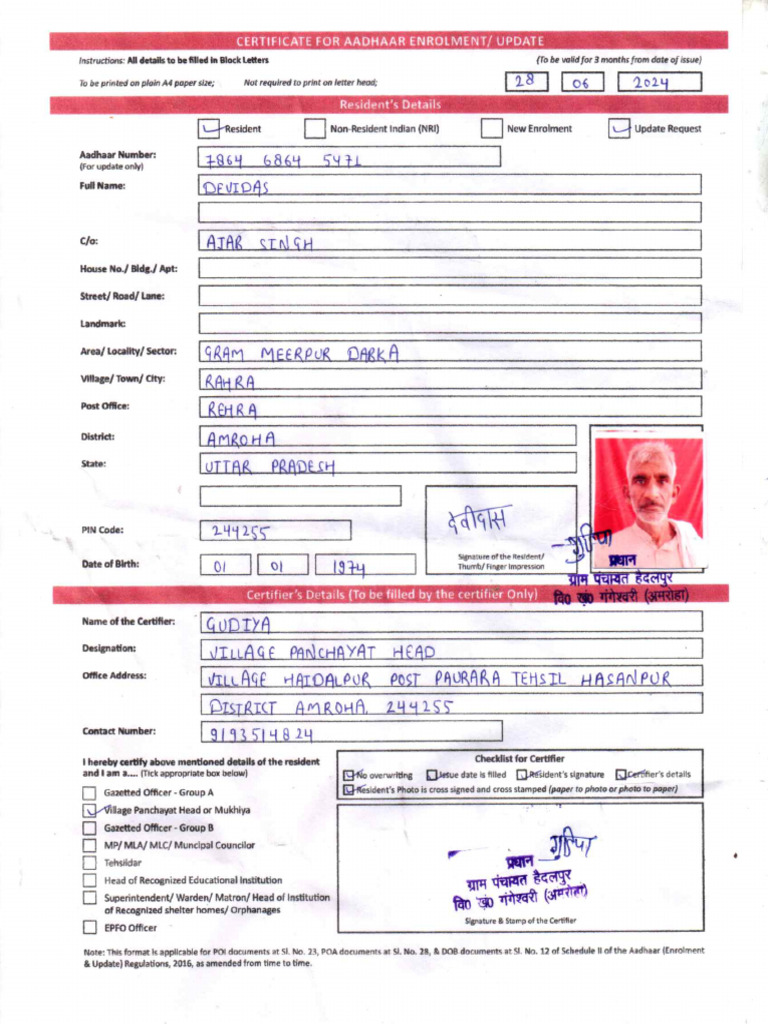 CERTIFICATE FOR AADHAAR ENROLMENT/ UPDATE
Instructions: All details to be filled in Block Letters (To be valid for 3 months from date of issue)
To be printed on plain A4 paper size; Not required to print on letter head; 28 06 2024
Resident's Details
Resident Non-Resident Indian (NRI) New Enrolment Update Request
Aadhaar Number: 7864 6864 5471
(For update only)
Full Name: DEVIDAS
C/o: AJAB SINGH
House No./ Bldg./ Apt:
Street/ Road/ Lane:
Landmark:
Area/ Locality/ Sector: GRAM MEERPUR DARKA
Village/ Town/ City: RAHRA
Post Office: REHRA
District: AMROHA
State: UTTAR PRADESH
देवीदास
PIN Code: 244255
Signature of the Resident/
Thumb/ Finger Impression
गुड़िया
प्रधान
ग्राम पंचायत हैदलपुर
वि0 खं0 गंगेश्वरी (अमरोहा)
Date of Birth: 01 01 1974
Certifier's Details (To be filled by the certifier Only)
Name of the Certifier: GUDIYA
Designation: VILLAGE PANCHAYAT HEAD
Office Address: VILLAGE HAIDALPUR POST PAURARA TEHSIL HASANPUR
DISTRICT AMROHA, 244255
Contact Number: 9193514824
I hereby certify above mentioned details of the resident
and I am a.... (Tick appropriate box below)
Gazetted Officer - Group A
Village Panchayat Head or Mukhiya
Gazetted Officer - Group B
MP/ MLA/ MLC/ Muncipal Councilor
Tehsildar
Head of Recognized Educational Institution
Superintendent/ Warden/ Matron/ Head of Institution
of Recognized shelter homes/ Orphanages
EPFO Officer
Checklist for Certifier
No overwriting Issue date is filled Resident's signature Certifier's details
Resident's Photo is cross signed and cross stamped (paper to photo or photo to paper)
गुड़िया
प्रधान
ग्राम पंचायत हैदलपुर
वि0 खं0 गंगेश्वरी (अमरोहा)
Signature & Stamp of the Certifier
Note: This format is applicable for POI documents at Sl. No. 23, POA documents at Sl. No. 28, & DOB documents at Sl. No. 12 of Schedule II of the Aadhaar (Enrolment
& Update) Regulations, 2016, as amended from time to time.